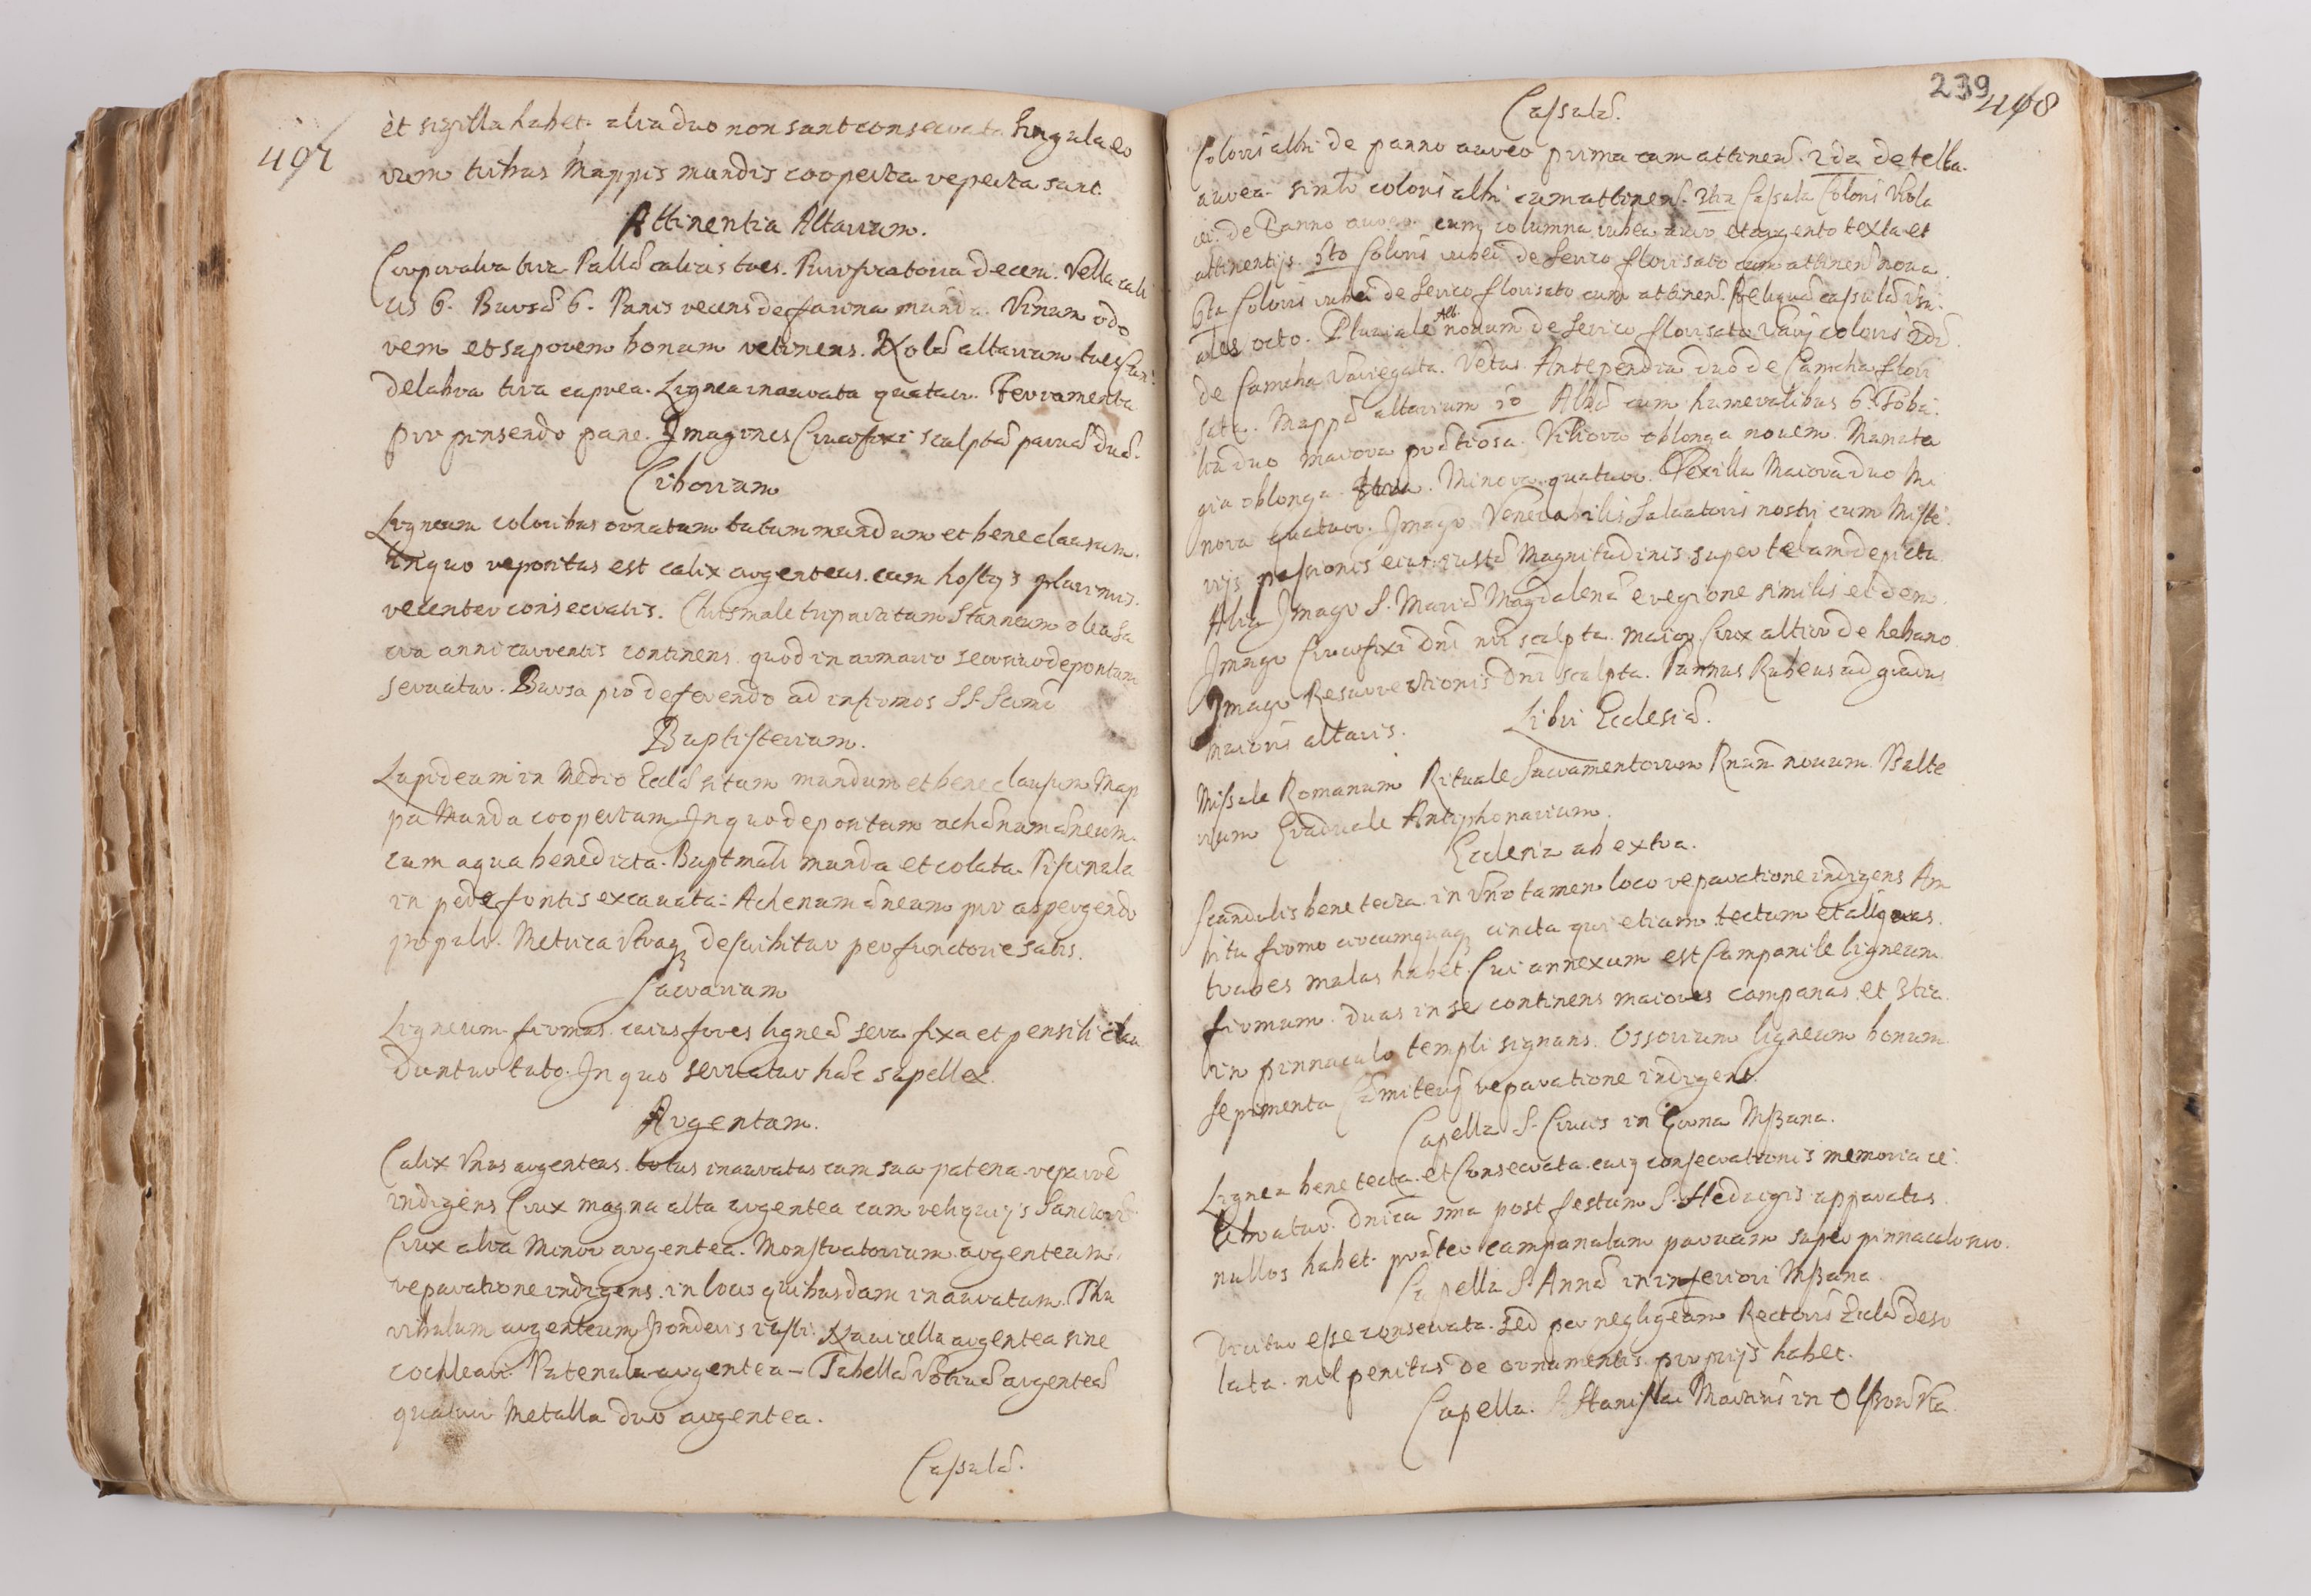 497
et sigilla habet. alia duo non sunt consecrata. Singula eo
rum tribus Mappis mundis cooperta reperta sunt.
Attinentia Altarium.
Corporalia tria Pallæ calicis tres. Purificatoria decem. Vella cali
cis 6. Bursæ 6. Panis recens de farina munda. Vinum odo
rem et saporem bonum retinens. Nolæ altarium tres Can
delabra tria cuprea. Lignea inaurata quatuor. Ferramenta
pro pinsendo pane. Imagines Crucifixi sculptæ parvæ duæ.
Ciborium
Ligneum coloribus ornatum tutum mundum et bene clausum.
in quo repositus est calix argenteus. cum hostijs plurimis.
recenter consecratis. Chrismale tripartitum Stanneum olea Sa
cra anni currentis continens quod in armario seorsivo depositum
servatur. Bursa pro deferendo ad infirmos SS. Scmo
Baptisterium.
Lapideum in Medio Ecclæ situm mundum et bene clausum Map
pa Munda coopertum In quo depositum achænum æneum.
cum aqua benedicta. Baptmali munda et colata. Piscinula
in pede fontis excavata. Achenum æneum pro aspergendo
populo. Metrica Utraqꝫ describitur perfunctorie satis.
Sacrarium
Ligneum firmum. cuius fores ligneæ sera fixa et pensili clau
duntur tuto. In quo servatur hæc supellex.
Argentum.
Calix Unus argenteus. totus inauratus cum sua patena. reparõe
indigens Crux magna alta argentea cum reliquijs Sanctorũ
Crux alia Minor argentea. Monstratorium argenteum.
reparatione indigens. in locis quibusdam inauratum. Thu
ribulum argenteum ponderis iusti. Navicella argentea sine
cochleari. Patenula argentea – Tabellæ Votivæ argenteæ
quatuor Metalla duo argentea.
Casulæ.
239
498
Casulæ.
Coloris albi de panno aureo prima cum attinen. 2da de tella.
aurea. simli coloris albi cum attinen. 3tia Casula Coloris Viola
cei. de Panno aureo. cum columna rubea auro et argento texta et
attinentijs. 5to Coloris rubei de Serico florisato cum attinen nova.
6ta Coloris rubei de Serico florisato cum attinen. Reliquæ casulæ usu
ales octo. Pluviale Alb. novum de Serico florisato varij coloris 2dũ
de Camcha Variegata. Vetus. Antependia duo de Camcha flori
sata. Mappæ altarium 10 Albæ cum humeralibus 6. Toba
lia duo maiora prætiosa. Viliora oblonga novem. Manuter
gia oblonga. tria. Minora. quatuor. Vexilla Maiora duo Mi
nora quatuor. Imago Venerabilis Salvatoris nostri cum Miste
rijs passionis eius iustæ Magnitudinis super telam depicta
Alia Imago S. Mariæ Magdalenæ e regione similis eidem.
Imago Crucifixi Dni nri sculpta. maior. Crux altior de hebano
Imago Resurrectionis Dni sculpta. Pannus Rubeus ad gradus
maioris altaris.
Libri Ecclesiæ.
Missale Romanum Rituale Sacramentorum Rnum novum. Psalte
rium Graduale Antiphonarium.
Ecclesia ab extra.
Scandulis bene tecta. in Uno tamen loco reparatione indigens Am
bitu firmo circumquaqꝫ cincta qui etiam tectum et aliquas.
trabes malas habet. Cui annexum est Campanile ligneum
firmum. duas in se continens maiores campanas. et 3tia.
in pinnaculo templi signans. Ossorium ligneum bonum.
Sepimenta Cæmiterij reparatione indigent.
Capella S. Crucis in Mszana.
Lignea bene tecta. et Consecrata. cuiꝫ consecrationis memoria ce
lebratur. Dnica 1ma post festum S. Hedvigis apparatus
nullos habet. præter campanulam parvam super pinnaculum.
Capella S. Annæ in inferiori Mszana
Dicitur esse consecrata. sed per negligeam Rectoris Ecclæ deso
lata. nil penitus de ornamentis proprijs habet.
Capella. S. Stanislai Martiris in